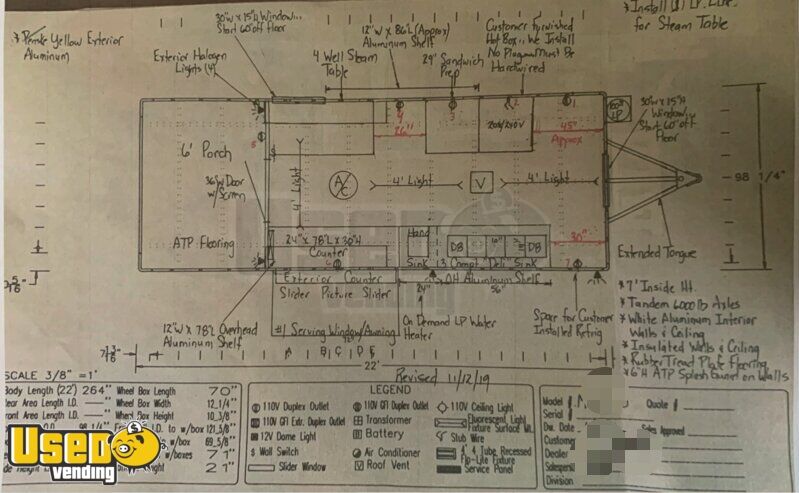 * Install (1) LP. Line
for Steam Table
* Yellow Exterior
Aluminum
30"W x 15"H Window...
Start 60" off floor
12"W x 86"L (Approx)
Aluminum Shelf
Customer Furnished
Hot Box... We Install
No Plug... Must Be
Hardwired
Exterior Halogen
Lights (4)
4 Well Steam
Table
29" Sandwich
Prep
30"W x 15"H
Window...
Start 60" off
Floor
100#
LP
26"
45"
Approx
6' Porch
36"W Door
w/ Screen
4' Light
A/C
4' Light
V
4' Light
98 1/4"
ATP Flooring
24" x 78"L x 30"H
Counter
Hand
Sink
DB
DB
3 Compt. Deli Sink
30"
Extended Tongue
Exterior Counter
Slider Picture Slider
OH Aluminum Shelf
24"
56"
#1 Serving Window/Awning
12"W x 78"L Overhead
Aluminum Shelf
On Demand LP Water
Heater
Space for Customer
Installed Refrig
* 7' Inside Ht.
* Tandem 6000 lb Axles
* White Aluminum Interior
Walls & Ceiling
* Insulated Walls & Ceiling
* Rubber Tread Plate Flooring
* 6"H ATP Splash around on Walls
A B C D E
22'
Revised 11/12/19
SCALE 3/8" = 1'
Body Length (22') 264"
Wheel Box Length 70"
Rear Area Length I.D.
Wheel Box Width 12-1/4"
Front Area Length I.D.
Wheel Box Height 10-3/8"
98-1/4
I.D. to w/box 121-5/8"
w/box 69-5/8"
w/boxes 71"
21"
LEGEND
110V Duplex Outlet
110V GFI Duplex Outlet
110V Ceiling Light
110V GFI Extr. Duplex Outlet
Transformer
Fluorescent Light
Fixture Surface Mt.
12V Dome Light
Battery
Stub Wire
$ Wall Switch
Air Conditioner
4' 4 Tube Recessed
Flo-Lite Fixture
Slider Window
V Roof Vent
Service Panel
Model
Quote #
Serial
Dw. Date
Sales Approved
Customer
Dealer
Salesperson
Division
USED
vending